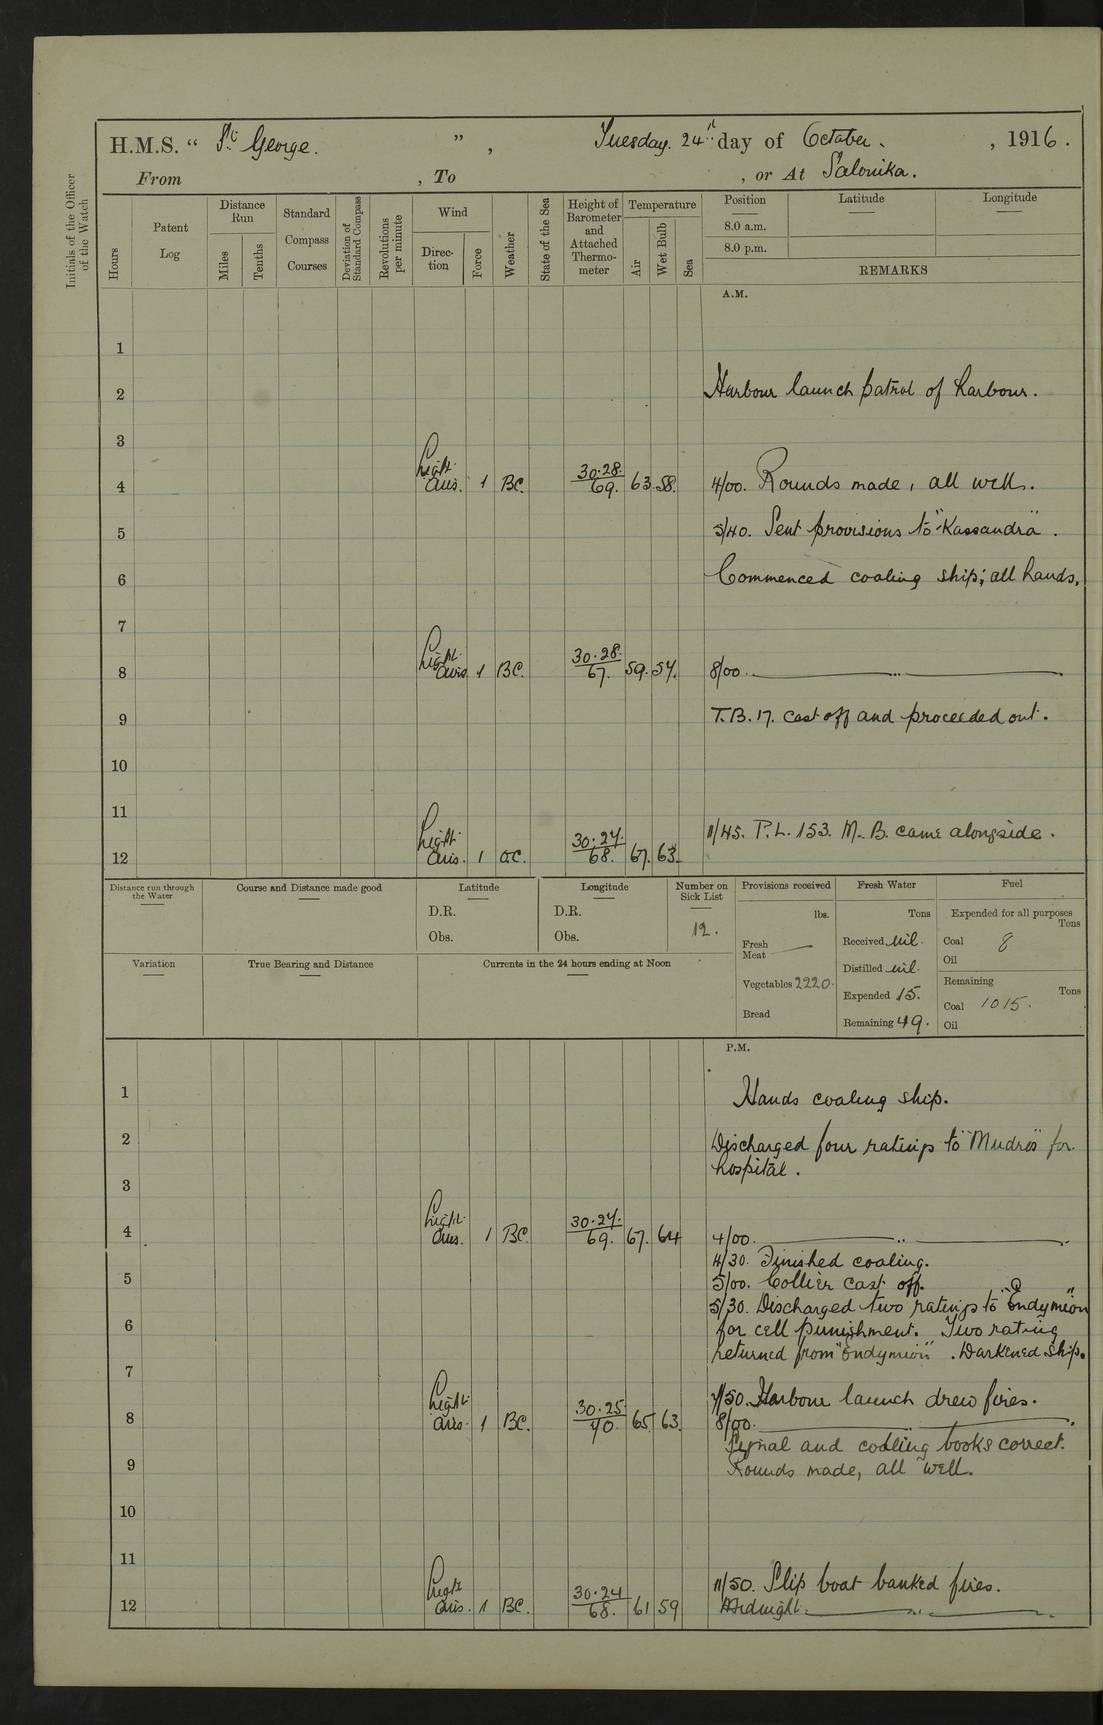 H.M.S. “ St George. ” , Tuesday. 24th day of October. , 1916.
From , To , or At Salonika.
Initials of the Officer of the Watch
Hours
Patent Log
Distance Run
Miles
Tenths
Standard Compass Courses
Deviation of Standard Compass
Revolutions per minute
Wind
Direc-tion
Force
Weather
State of the Sea
Height of Barometer and Attached Thermo-meter
Temperature
Air
Wet Bulb
Sea
Position
8.0 a.m.
8.0 p.m.
Latitude
Longitude
REMARKS
A.M.
1
2 Harbour launch patrol of harbour.
3
4 Light airs. 1 BC. 30.28. 69. 63. 58. 4/00. Rounds made, all well.
5 5/40. Sent provisions to "Kassandra".
6 Commenced coaling ship; all hands.
7
8 Light airs 1 BC. 30.28. 67. 59. 57. 8/00. — „ —
9 T.B. 17. cast off and proceeded out.
10
11
11/45. P.L. 153. M.B. came alongside.
12 Light airs. 1 OC. 30.27. 68. 67. 63.
Distance run through the Water
Course and Distance made good
Latitude
D.R.
Obs.
Longitude
D.R.
Obs.
Number on Sick List
12.
Provisions received
lbs.
Fresh Meat —
Vegetables 2220.
Bread
Fresh Water
Tons
Received nil.
Distilled nil.
Expended 15.
Remaining 49.
Fuel
Expended for all purposes
Tons
Coal 8
Oil
Remaining
Tons
Coal 1015.
Oil
Variation
True Bearing and Distance
Currents in the 24 hours ending at Noon
P.M.
1 Hands coaling ship.
2 Discharged four ratings to "Mudros" for
hospital.
3
4 Light airs. 1 BC. 30.27. 69. 67. 64 4/00. — „ —
4/30. Finished coaling.
5 5/00. Collier cast off.
5/30. Discharged two ratings to "Endymion"
6 for cell punishment. Two rating
returned from "Endymion". Darkened ship.
7
7/50. Harbour launch drew fires.
8 Light airs. 1 BC. 30.25 70. 65. 63. 8/00. —
Signal and coding books correct.
9 Rounds made, all well.
10
11
11/50. Slip boat banked fires.
12 Light airs. 1 BC. 30.24 68. 61 59 Midnight. — „ —